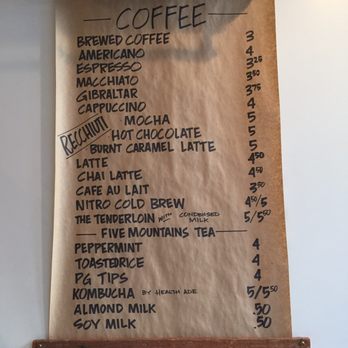 COFFEE
BREWED COFFEE 3
AMERICANO 4
ESPRESSO 3.25
MACCHIATO 3.50
GIBRALTAR 3.75
CAPPUCCINO 4
RECCHIUTI
MOCHA 5
HOT CHOCOLATE 5
BURNT CARAMEL LATTE 5
LATTE 4.50
CHAI LATTE 4
CAFE AU LAIT 3.50
NITRO COLD BREW 4.50/5
THE TENDERLOIN WITH CONDENSED MILK 5/5.50
FIVE MOUNTAINS TEA
PEPPERMINT 4
TOASTED RICE 4
PG TIPS 4
KOMBUCHA BY HEALTH ADE 5/5.50
ALMOND MILK .50
SOY MILK .50